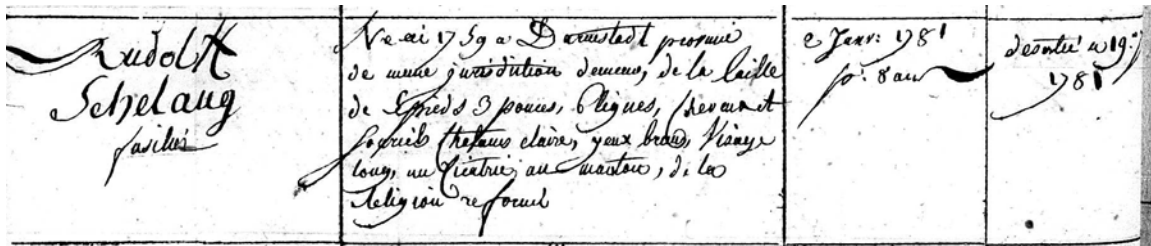 Rudolff
Schelaug
fusilier
Né en 1759 a Darmstadt province
de meme jurisdition demeus, de la taille
de 5 pieds 3 pouces, 6 lignes, cheveux et
sourcils chatains claire, yeux bruns, Visage
long, un Cicatrice au manton, de la
Religion reformé
2 Janv: 1781
pr: 8 ans
deserté a 19:
1781